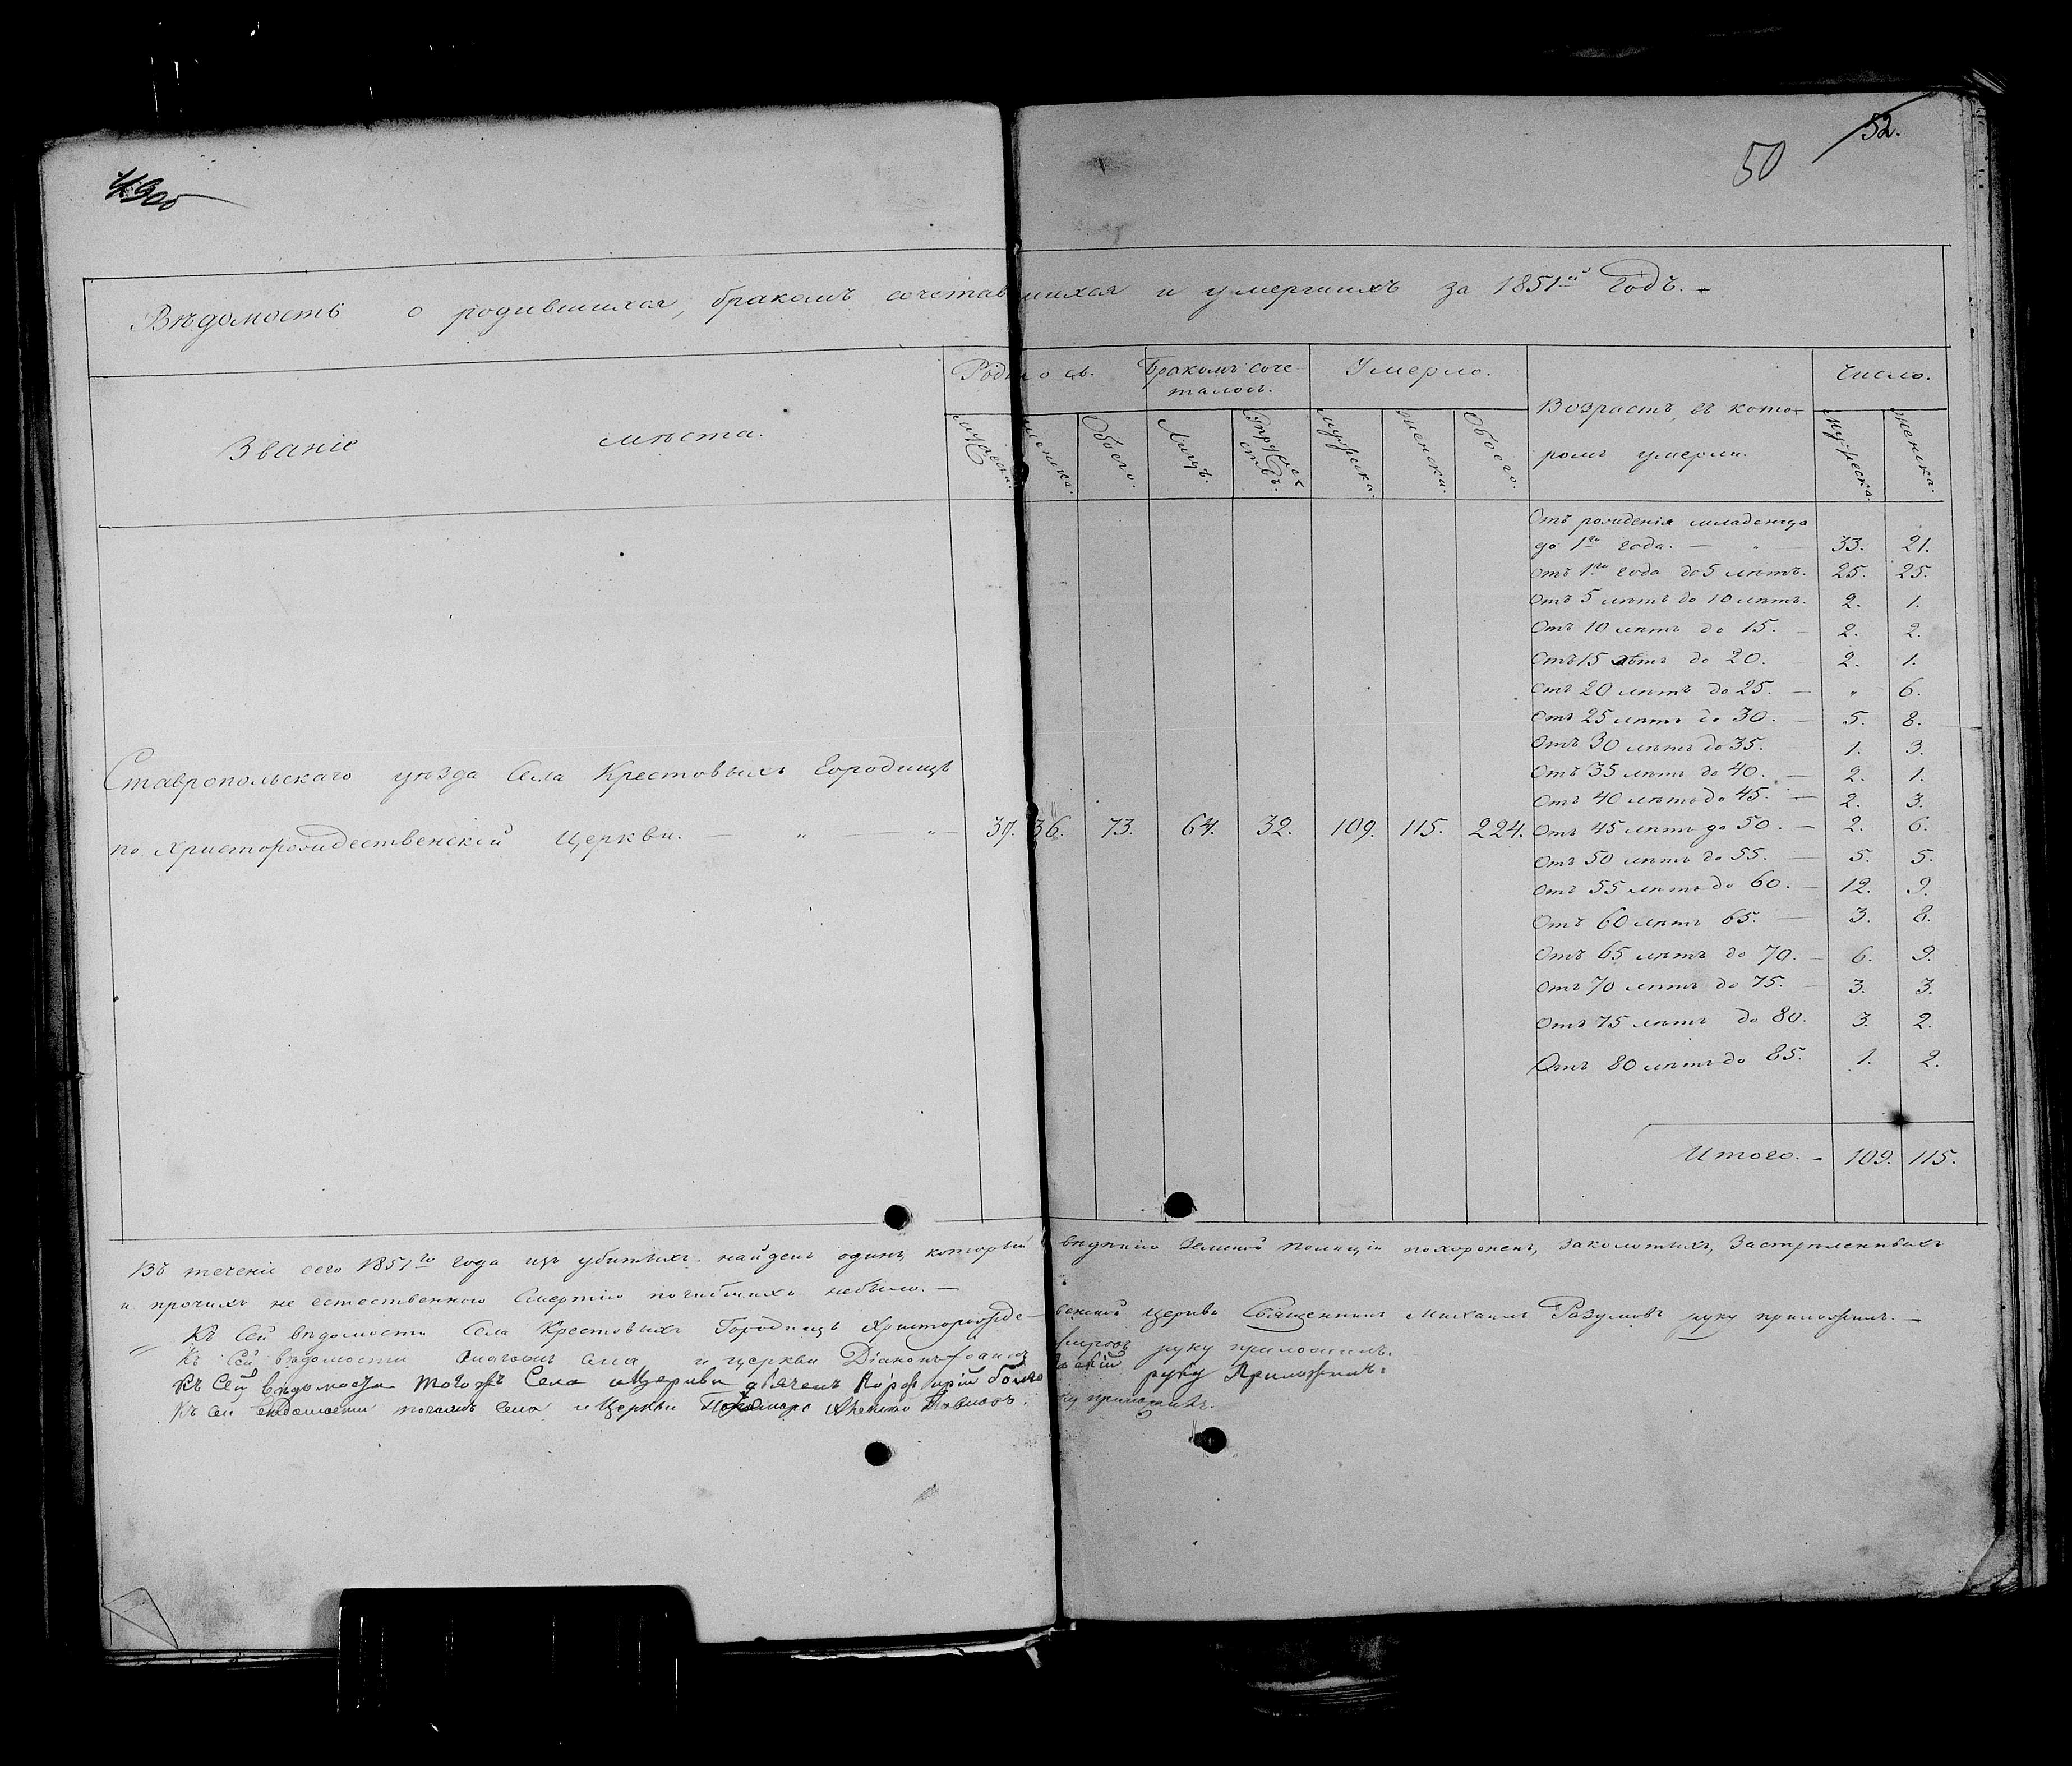 52.
50
Вѣдомость о родившихся, бракомъ сочетавшихся и умершихъ за 1851й Годъ.
Званіе мѣста.
Родилось.
Бракомъ сочеталось.
Умерло.
Возрастъ, въ которомъ умерли.
Число.
Мужеска.
Женска.
Обоего.
Лицъ.
Супружествъ.
Мужеска.
Женска.
Обоего.
Мужеска.
Женска.
Ставропольскаго уѣзда Села Крестовыхъ Городищъ
по Христорождественской Церкви. — " — " —
37. 36. 73. 64. 32. 109. 115. 224.
Отъ рожденія младенца
до 1го года. — " — 33. 21.
Отъ 1го года до 5 лѣтъ. 25. 25.
Отъ 5 лѣтъ до 10 лѣтъ. 2. 1.
Отъ 10 лѣтъ до 15. — 2. 2.
Отъ 15 лѣтъ до 20. 2. 1.
Отъ 20 лѣтъ до 25. — " 6.
Отъ 25 лѣтъ до 30. — 5. 8.
Отъ 30 лѣтъ до 35. — 1. 3.
Отъ 35 лѣтъ до 40. — 2. 1.
Отъ 40 лѣтъ до 45. — 2. 3.
Отъ 45 лѣтъ до 50. — 2. 6.
Отъ 50 лѣтъ до 55. — 5. 5.
Отъ 55 лѣтъ до 60. — 12. 9.
Отъ 60 лѣтъ 65. — 3. 8.
Отъ 65 лѣтъ до 70. — 6. 9.
Отъ 70 лѣтъ до 75. — 3. 3.
Отъ 75 лѣтъ до 80. 3. 2.
Отъ 80 лѣтъ до 85. 1. 2.
Итого. — 109. 115.
Въ теченіе сего 1851го года изъ убитыхъ найденъ одинъ, который вѣдѣнію Земской Полиціи похороненъ, Заколотыхъ, Застрѣленныхъ
и прочихъ не естественною Смертію погибшихъ небыло. —
Къ Сей вѣдомости Села Крестовыхъ Городищъ Христорожде- венской церкви Священникъ Михаилъ Разумовъ руку приложилъ. —
Къ Сей вѣдомости села и церкви Діаконъ руку приложилъ.
Къ Сей вѣдомости тогожъ Села и Церкви дьячекъ Порфирій руку Приложилъ.
Къ сей вѣдомости тогожъ села и Церкви Пономарь Павловъ руку приложилъ.